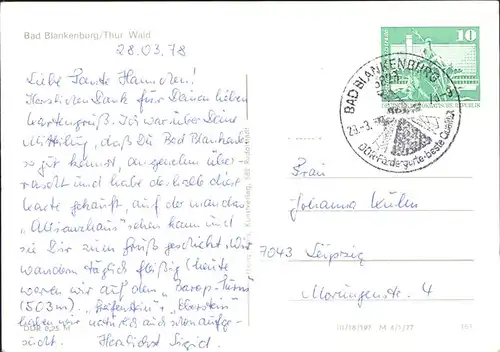 Bad Blankenburg/Thür Wald
28.03.78
Liebe Tante Hannchen!
Herzlichen Dank für Deinen lieben
Kartengruß. Ich war über Deine
Mitteilung, daß Du Bad Blankenbg.
so gut kennst, angenehm über-
rascht und habe deshalb diese
Karte gekauft, auf der man das
sehen kann und
sie Dir zum Gruß geschickt. Wir
wandern täglich fleißig (heute
waren wir auf dem "Barop-Turm"
(503m). "Greifenstein" + "Eberstein"
haben wir natürlich auch schon aufge-
sucht. Herzlichst Sigrid.
DDR 0,25 M
10
DEUTSCHE DEMOKRATISCHE REPUBLIK
BAD BLANKENBURG
28-3
beste Qualität
Frau
Johanna
7043 Leipzig
Morungenstr. 4
III/18/197 M 4/1/77